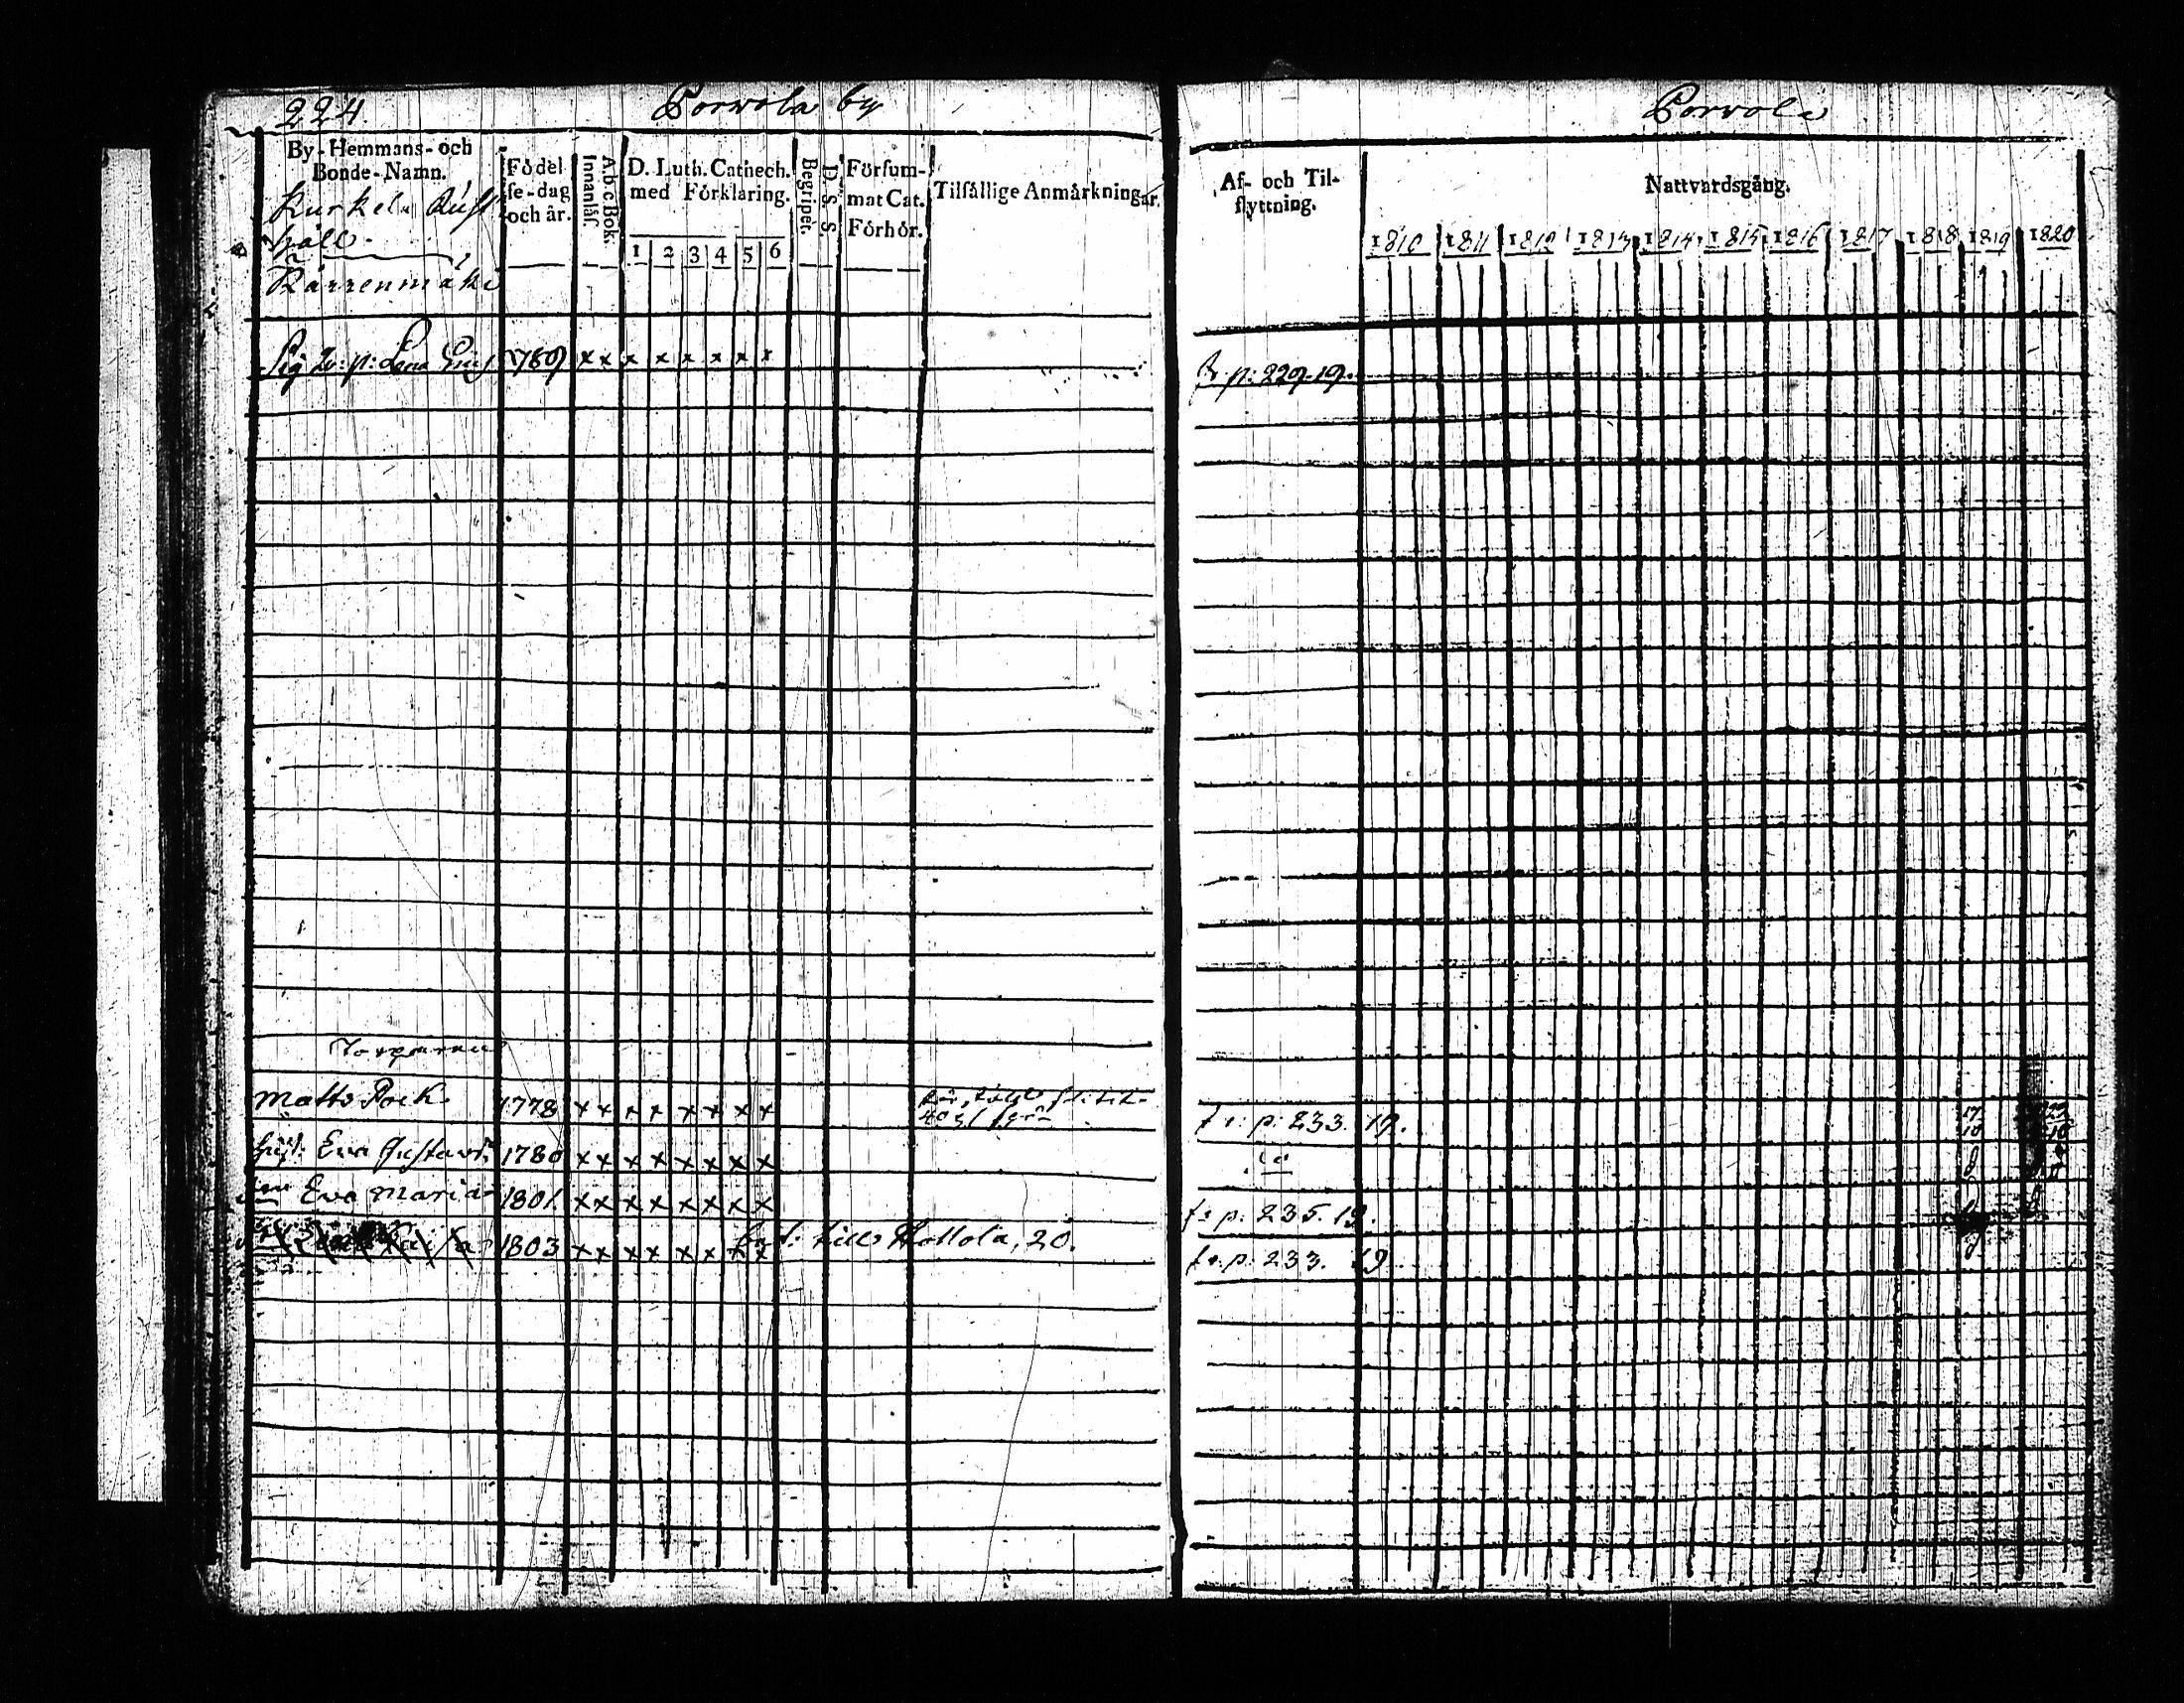 224.
Porvola by
By-Hemmans- och
Bonde-Namn.
Kurkela Rust
håll.
Kärrenmäki
Födel
se-dag
och år.
A.b.c.Bok.
Innanläs.
D. Luth. Cathech.
med Förklaring.
1 2 3 4 5 6
Begriper.
D. S. S.
Försum-
mat Cat.
Förhör.
Tilfällige Anmärkningar.
p: Lena 1789 x x x x x x x x
Torparen
Matts Pock 1778 x x x x x x x x
Eva Gustavsd. 1780 x x x x x x x x
Eva Maria 1801. x x x x x x x x
1803 x x x x x x x x till Hollola, 20.
Porvola
Af- och Til-
flyttning.
Nattvardsgång.
1810 1811 1812 1813 1814 1815 1816 1817 1818 1819 1820
p: 229. 19.
fr: p: 233. 19.
17
10
fr p: 235. 19.
fr. p. 233. 19